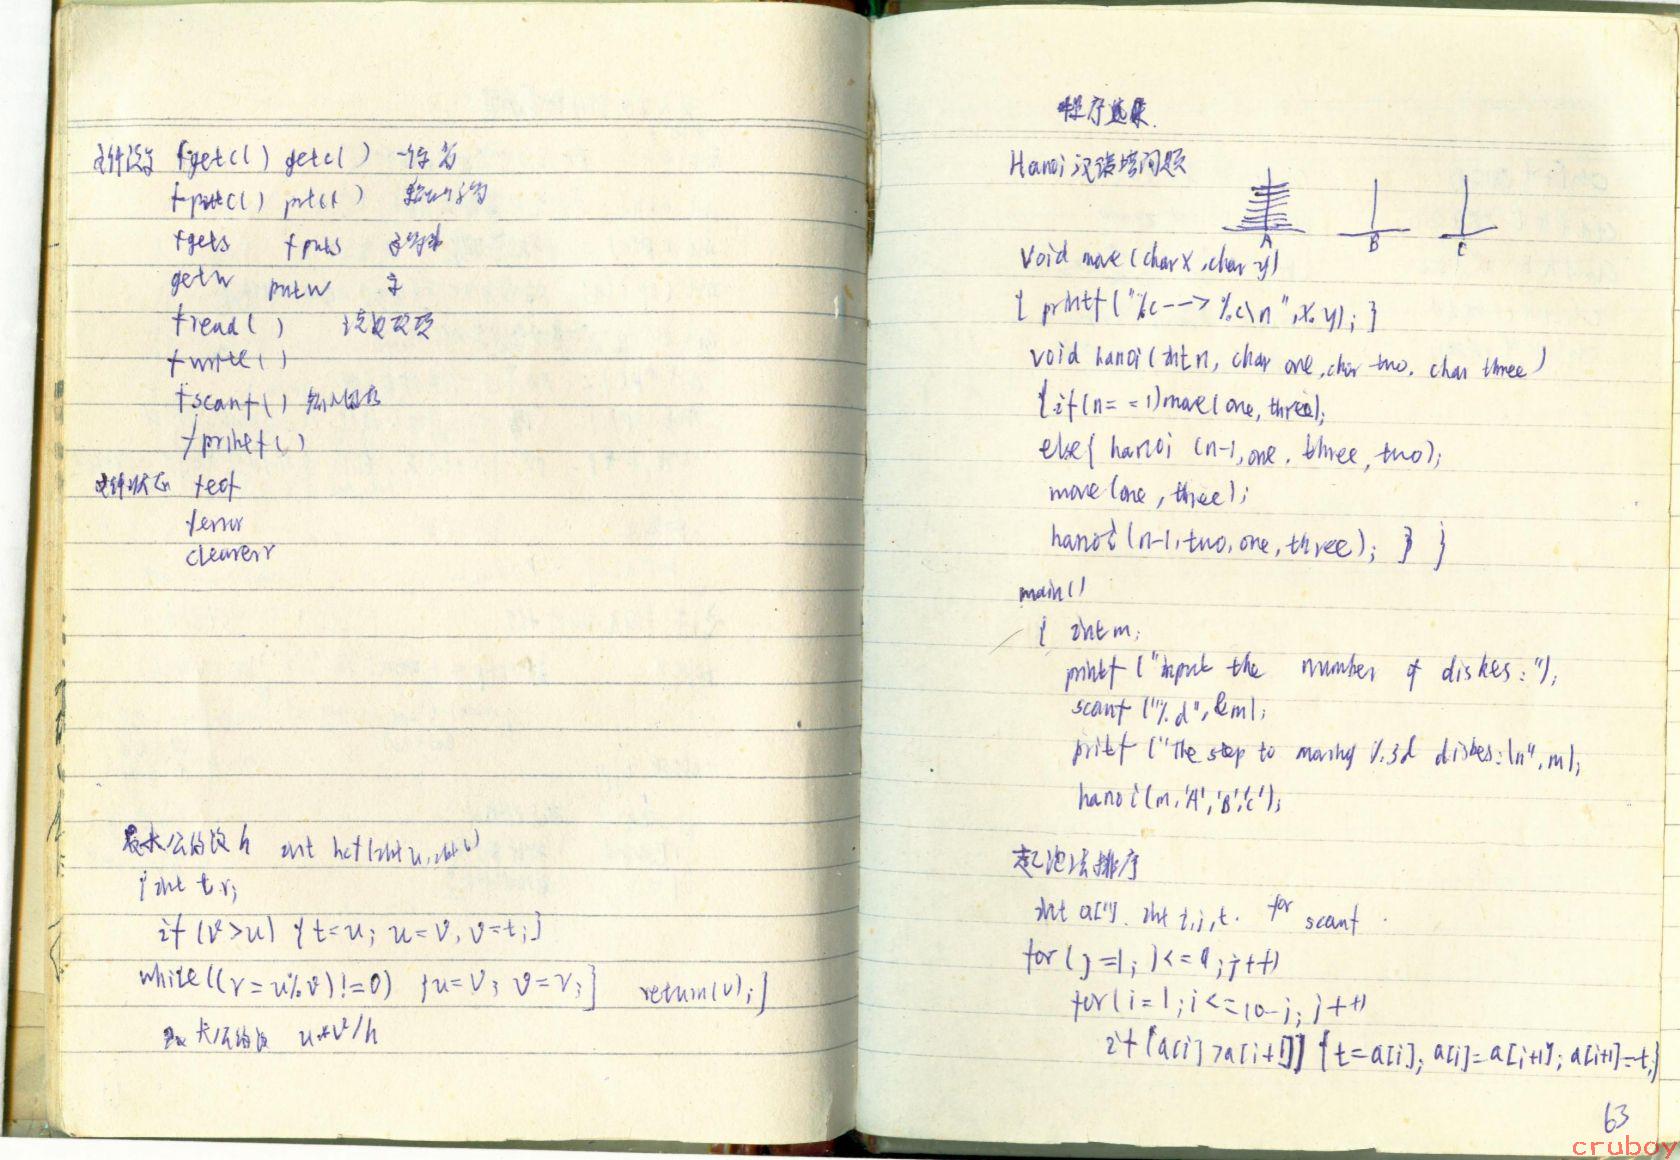 文件读写 fgetc() getc() 一个字节
fputc() putc() 输出一个字节
fgets fputs 字符串
getw putw 字
fread() 读数据项
fwrite()
fscanf() 输入
fprintf()
文件状态 feof
ferror
clearerr
最大公约数h int hcf(int u,int v)
{int t,r;
if(v>u) {t=u; u=v, v=t;}
while((r=u%v)!=0) {u=v; v=r;} return(v);}
大公约数 u*v/h
程序选录.
Hanoi汉诺塔问题
A B C
void move(char x,char y)
{ printf("%c--->%c\n",x,y);}
void hanoi(int n, char one,char two, char three)
{if(n==1)move(one,three);
else{ hanoi (n-1,one,three,two);
move(one,three);
hanoi(n-1,two,one,three); } }
main()
{ int m;
printf("input the number of diskes:");
scanf("%d",&m);
pritf("The step to moving %3d diskes:\n",m);
hanoi(m,'A','B','C');
起泡法排序
int a[11]. int i,j,t. for scanf.
for(j=1;j<=9;j++)
for(i=1;i<=10-j;j++)
if(a[i]>a[i+1]) {t=a[i]; a[i]=a[i+1]; a[i+1]=t;}
63
cruboy